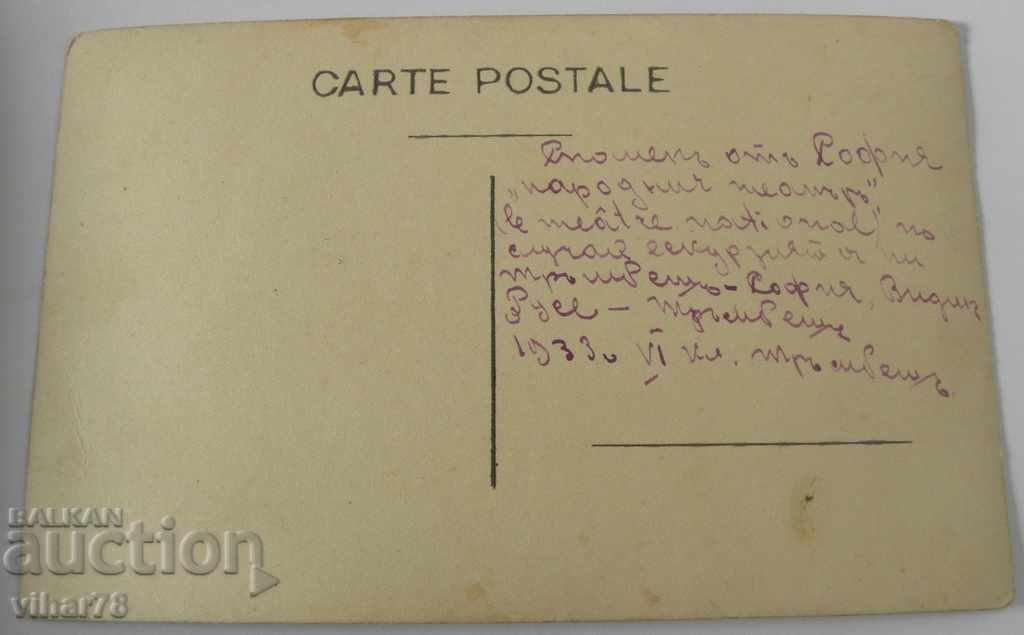 CARTE POSTALE
Споменъ отъ София
„народния театъръ",
(le teâtre national) по
случай екскурзията ни
Тръмбешъ - София, Видинъ
Русе - Тръмбешъ
1933 VI кл. Тръмбешъ
BALKAN
auction
vihar78